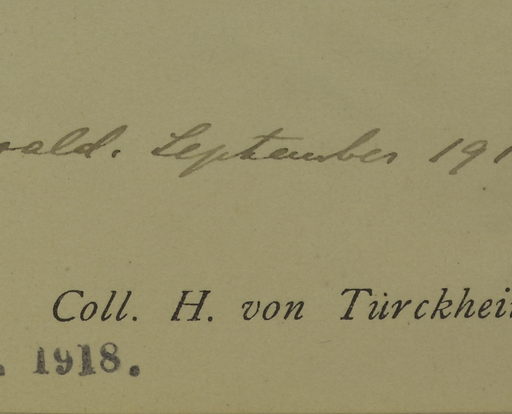 wald. September 191
Coll. H. von Türckhei
. 1918.